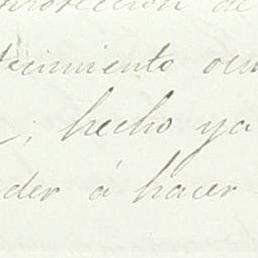 protección de
tecimiento ocu
; hecho ya
der á hacer